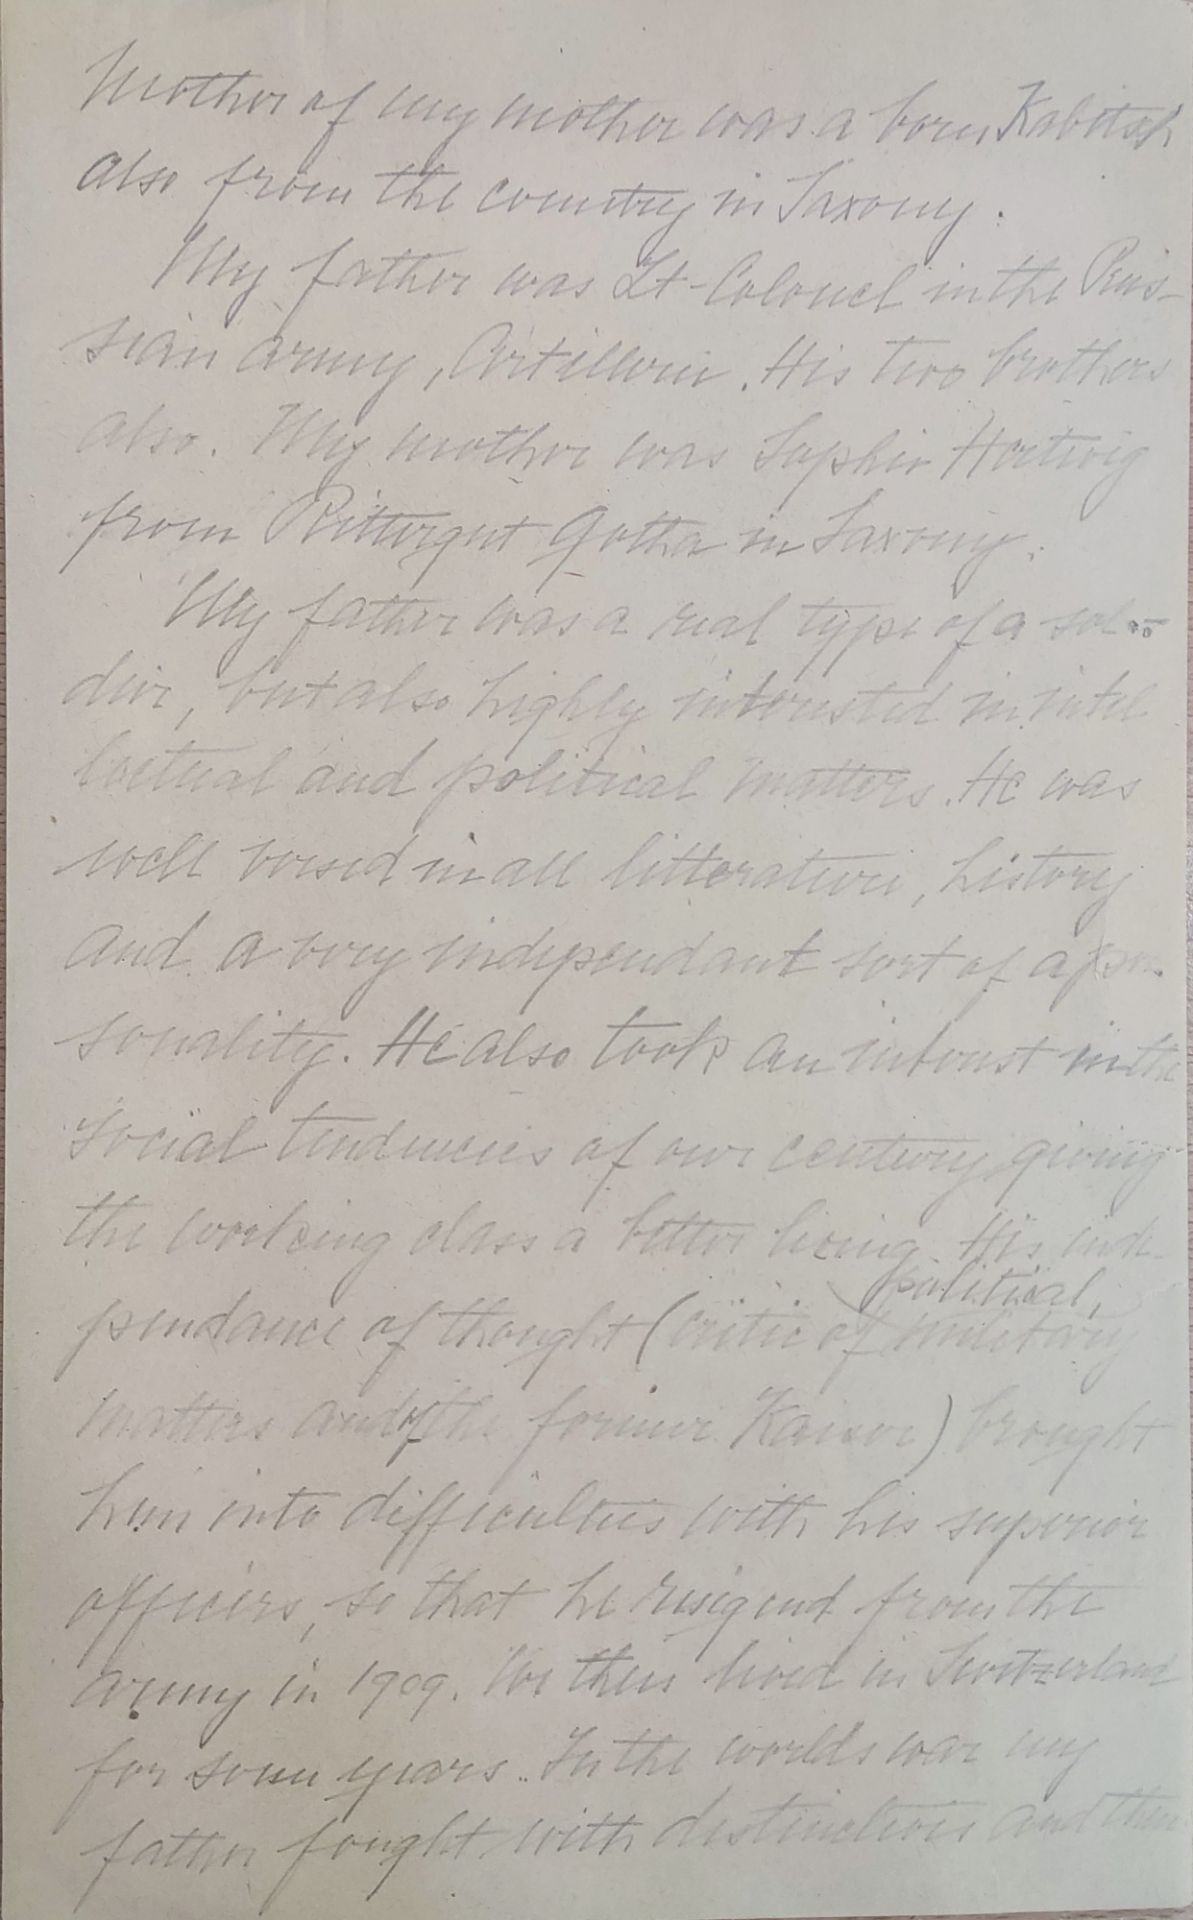 Mother of my mother was a born Kabitzsch
also from the country in Saxony.
My father was Lt-Colonel in the Prus-
sian army, Artillerie. His two brothers
also. My mother was Sophie Hertwig
from Rittergut Gotha in Saxony.
My father was a real type of a sol-
dier, but also highly interested in intel
lectual and political matters. He was
well versed in all litterature, history
and a very independant sort of a per-
sonality. He also took an interest in the
social tendencies of our century giving
the working class a better living. His inde-
political,
pendance of thought (critic of military
matters and of the former Kaiser) brought
him into difficulties with his superior
officers, so that he resigend from the
army in 1909. We then lived in Switzerland
for some years. In the worlds war my
father fought with distinction and then